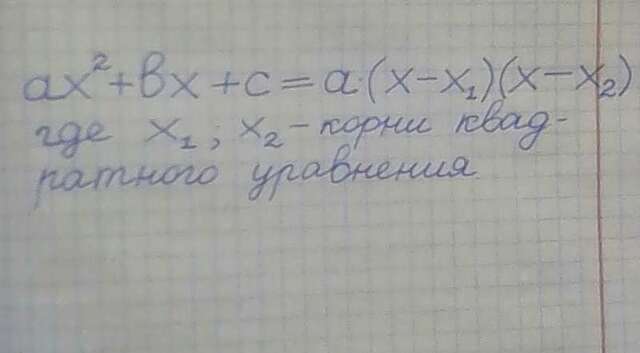 ax²+bx+c=a·(x-x₁)(x-x₂)
где x₁; x₂-корни квад-
ратного уравнения.